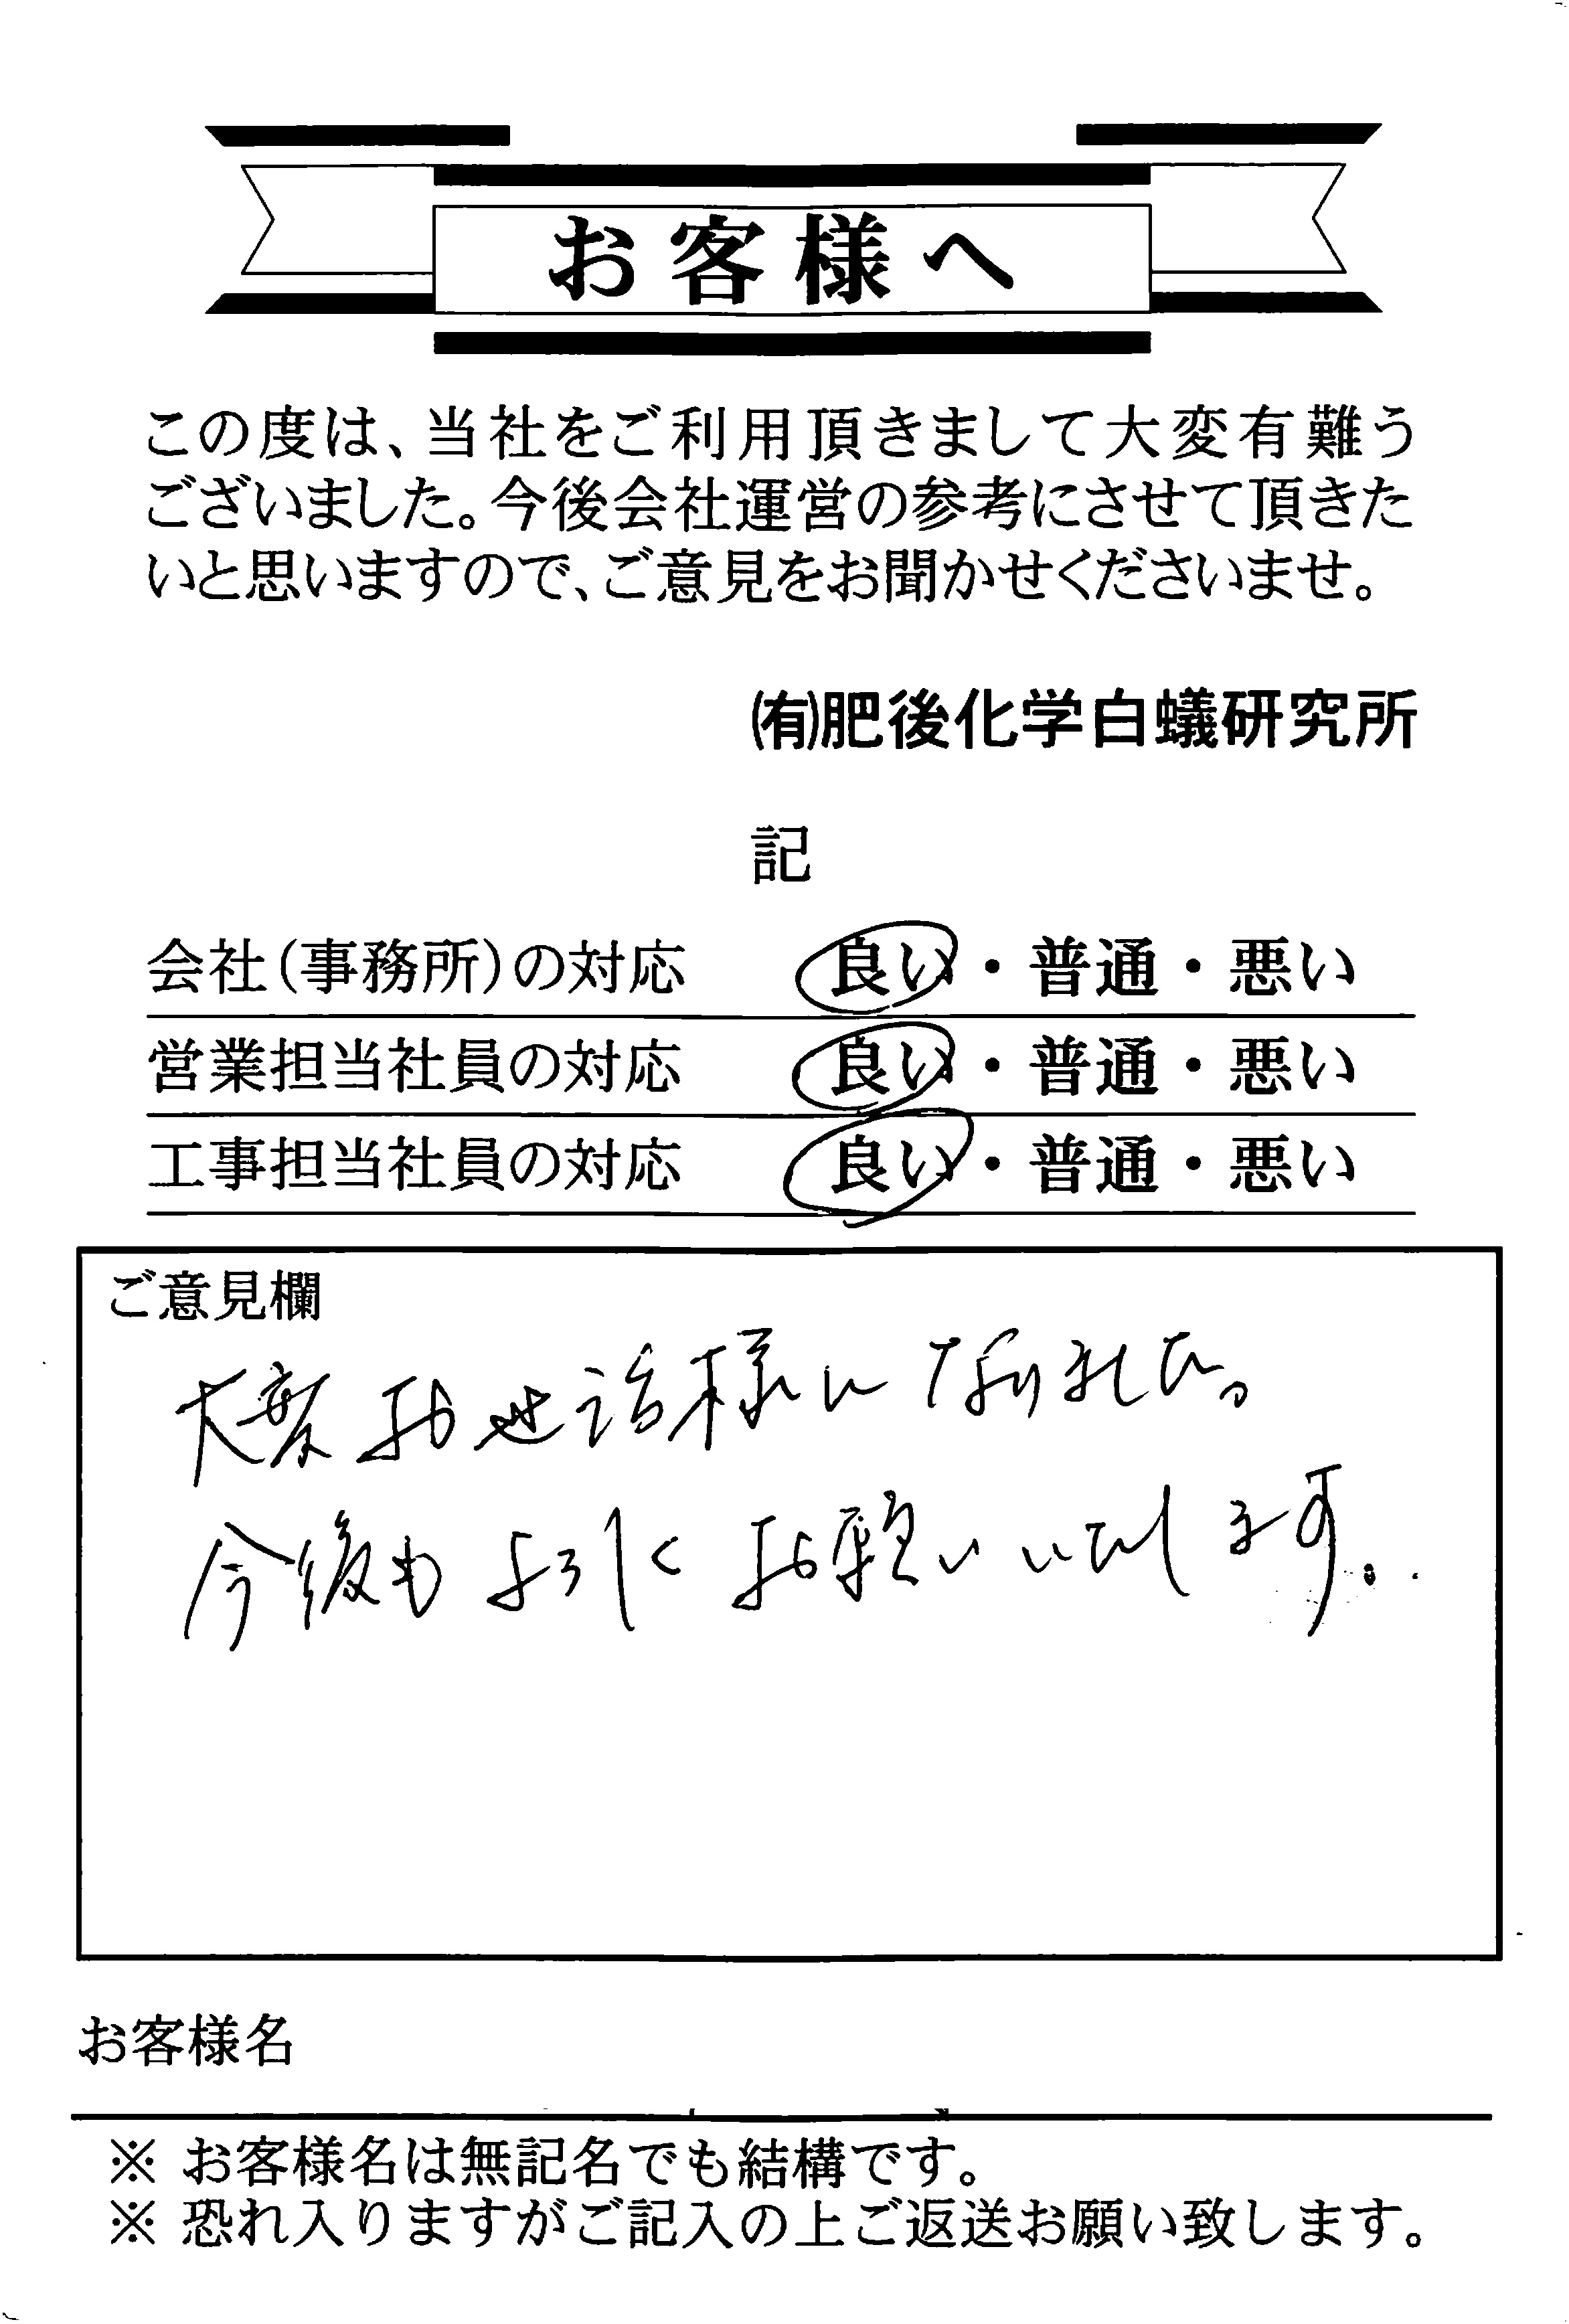 お客様へ
この度は、当社をご利用頂きまして大変有難う
ございました。今後会社運営の参考にさせて頂きた
いと思いますので、ご意見をお聞かせくださいませ。
㈲肥後化学白蟻研究所
記
会社(事務所)の対応 良い・普通・悪い
営業担当社員の対応 良い・普通・悪い
工事担当社員の対応 良い・普通・悪い
ご意見欄
大変お世話様になりました。
今後もよろしくお願いいたします。
お客様名
※ お客様名は無記名でも結構です。
※ 恐れ入りますがご記入の上ご返送お願い致します。